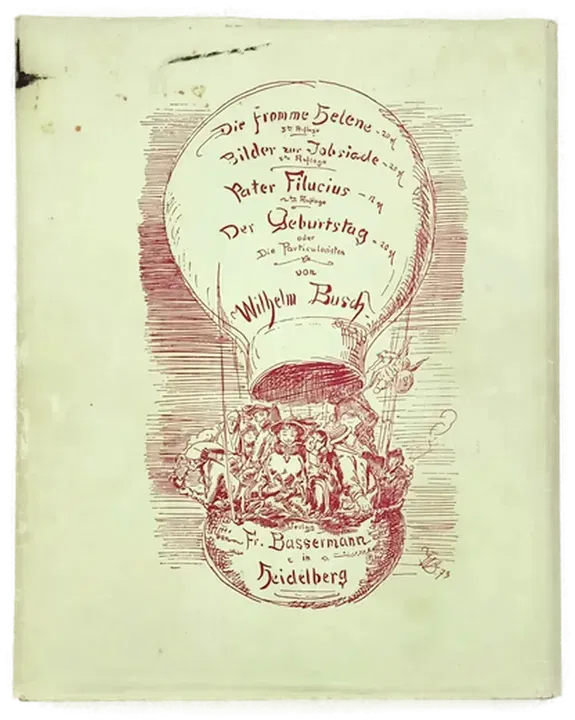 Die fromme Helene - 20 Sgr
3te Auflage
Bilder zur Jobsiade - 25
2te Auflage
Pater Filucius - 12
2te Auflage
Der Geburtstag - 20
oder
Die Particularisten
von
Wilhelm Busch.
Verlag
von
Fr. Bassermann
in
Heidelberg
WB 73